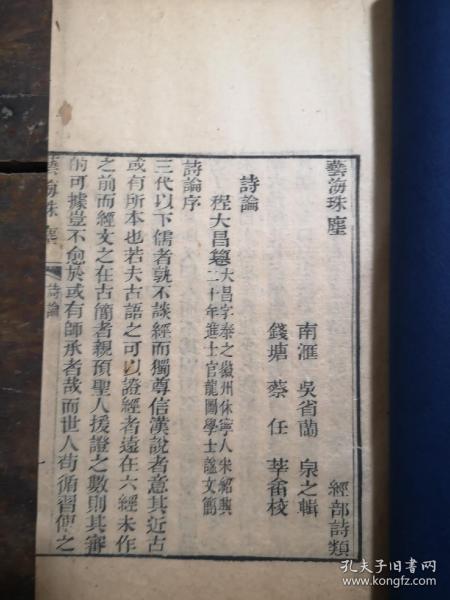 藝海珠塵　經部詩類
南滙　吳省蘭　泉之輯
錢塘　蔡　任　莘畬校
詩論
程大昌篹大昌字泰之徽州休寧人宋紹興
二十年進士官龍圖學士諡文簡
詩論序
三代以下儒者孰不談經而獨尊信漢說者意其近古
或有所本也若夫古語之可以證經者遠在六經未作
之前而經文之在古簡者親預聖人援證之數則其審
的可據豈不愈於或有師承者哉而世人苟循習傳之
藝海珠塵　詩論　一
孔夫子旧书网
kongfz.com